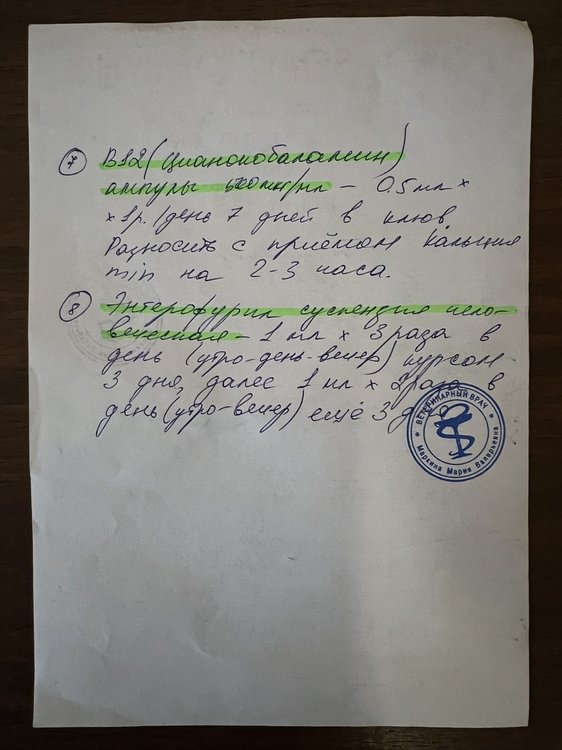 7 B12 (Цианокобаламин)
ампулы 500 мкг/мл – 0.5 мл ×
× 1 р./день 7 дней в клюв.
Разносить с приёмом кальция
min на 2-3 часа.
8 Энтерофурил суспензия чело-
веческая – 1 мл × 3 раза в
день (утро-день-вечер) курсом
3 дня, далее 1 мл × 2 раза в
день (утро-вечер) ещё 3 дня.
ВЕТЕРИНАРНЫЙ ВРАЧ
Маркина Мария Валерьевна